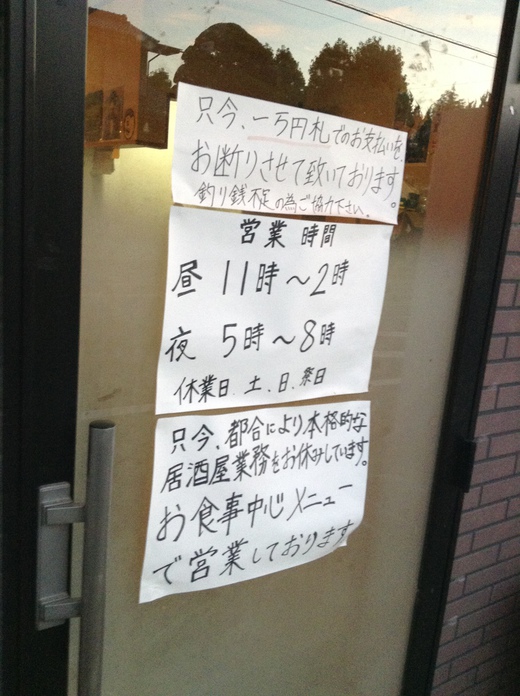 只今、一万円札でのお支払いを、
お断りさせて致いております。
釣り銭不足の為ご協力下さい。
営業時間
昼 11時～2時
夜 5時～8時
休業日.土.日.祭日
只今、都合により本格的な
居酒屋業務をお休みしています。
お食事中心メニュー
で営業しております